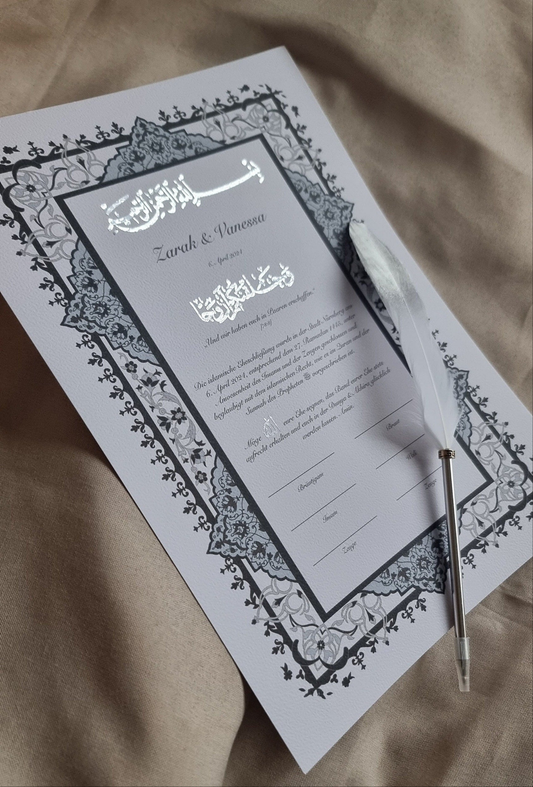 بسم الله الرحمن الرحيم
Zarak & Vanessa
6. April 2024
وخلقنكم أزوجا
„Und wir haben euch in Paaren erschaffen.“
[78:8]
Die islamische Eheschließung wurde in der Stadt Nürnberg am
6. April 2024, entsprechend dem 27. Ramadan 1445, unter
Anwesenheit des Imams und der Zeugen geschlossen und
beglaubigt mit dem islamischen Recht, wie es im Quran und der
Sunnah des Propheten ﷺ vorgeschrieben ist.
Möge الله eure Ehe segnen, das Band eurer Ehe stets
aufrecht erhalten und euch in der Dunya & Akhira glücklich
werden lassen. Amin.
Bräutigam
Braut
Imam
Wali
Zeuge
Zeuge